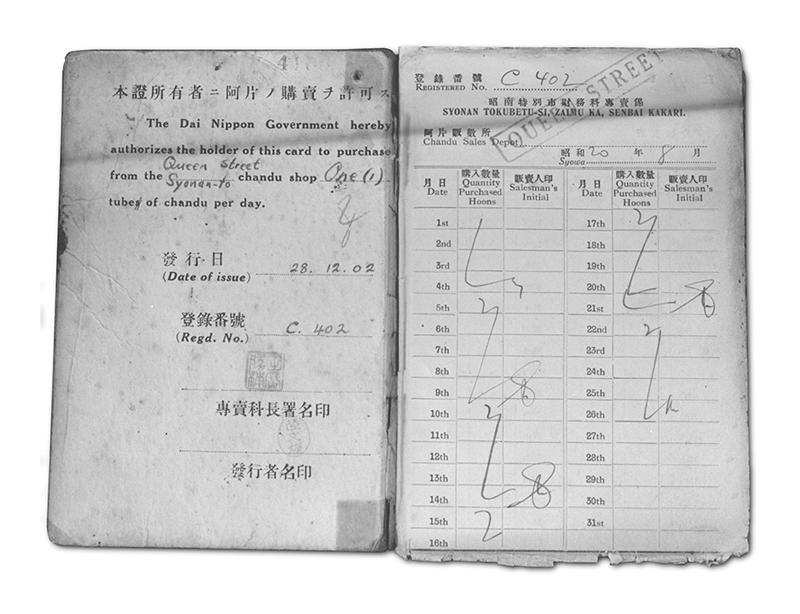 本證所有者ニ阿片ノ購賣ヲ許可ス
The Dai Nippon Government hereby
authorizes the holder of this card to purchase
Queen Street
from the Syonan-to chandu shop One (1)
tubes of chandu per day.
發行日
(Date of issue) 28. 12. 02
登錄番號
(Regd. No.) C. 402
專賣科長署名印
發行者名印
登錄番號
REGISTERED No. C 402
QUEEN STREET
昭南特別市財務科專賣係
SYONAN TOKUBETU-SI, ZAIMU KA, SENBAI KAKARI.
阿片販賣所
Chandu Sales Depot
昭和 20 年 8 月
Syowa
月日 購入數量 販賣人印 月日 購入數量 販賣人印
Date Quantity Purchased Hoons Salesman's Initial Date Quantity Purchased Hoons Salesman's Initial
1st 17th 2
2nd 18th
3rd 19th
4th 20th
5th 2 21st
6th 22nd 2
7th 23rd
8th 24th
9th 25th
10th 2 26th
11th 27th
12th 28th
13th 29th
14th 30th
15th 2 31st
16th